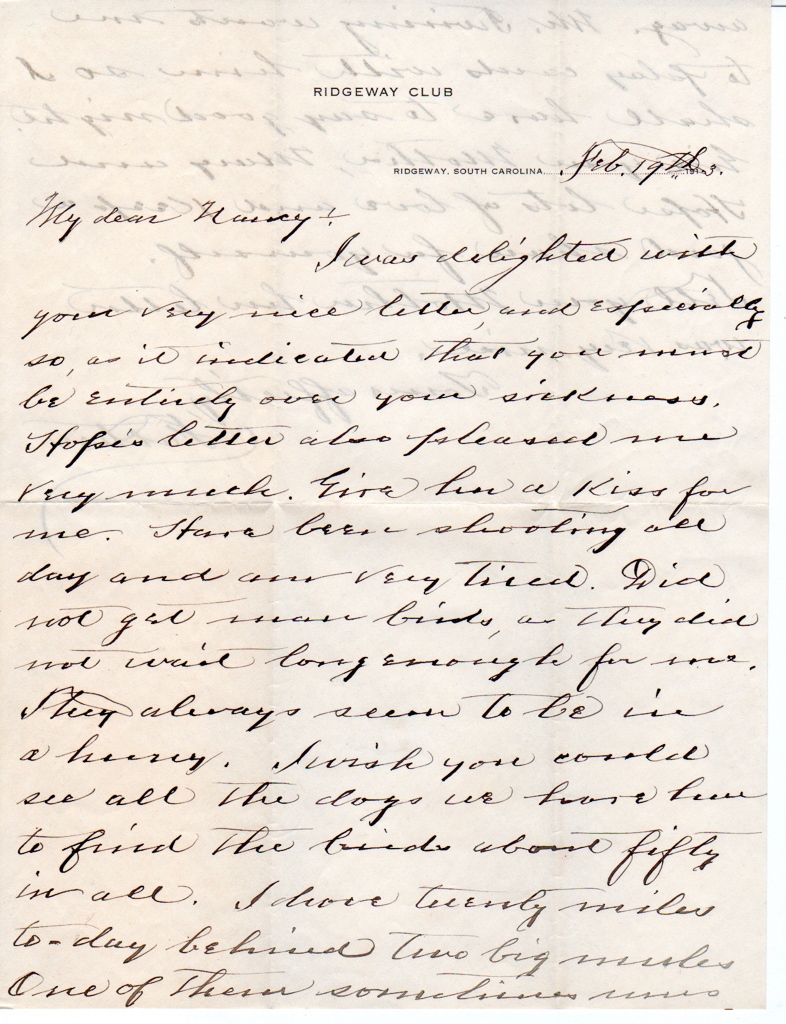 RIDGEWAY CLUB
RIDGEWAY, SOUTH CAROLINA. Feb. 19th 1913.
My dear Nancy!
I was delighted with
your very nice letter, and especially
so, as it indicated that you must
be entirely over your sickness.
Hope's letter also pleased me
very much. Give her a kiss for
me. Have been shooting all
day and am very tired. Did
not get man birds, as they did
not wait long enough for me.
They always seem to be in
a hurry. I wish you could
see all the dogs we have here
to find the birds about fifty
in all. I drove twenty miles
to-day behind two big mules
One of them sometimes runs